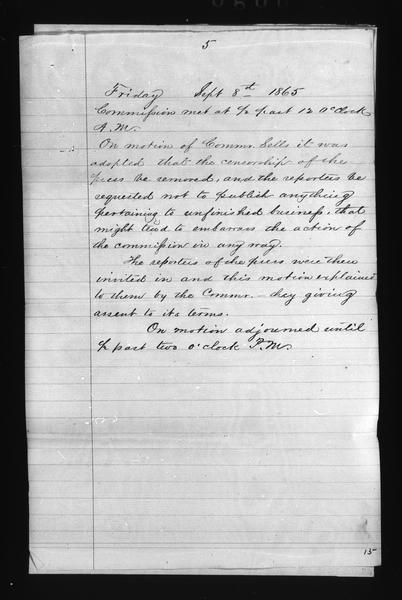 5
Friday Sept 8th 1865
Commission met at ½ past 12 o'clock
A.M.
On motion of Commr. Sells it was
adopted that the censorship of the
press be removed, and the reporters be
requested not to publish anything
pertaining to unfinished business, that
might tend to embarrass the action of
the commission in any way.
The reporters of the press were then
invited in and this motion explained
to them by the Commr. - they giving
assent to its terms.
On motion adjourned until
½ past two o'clock P.M.
15